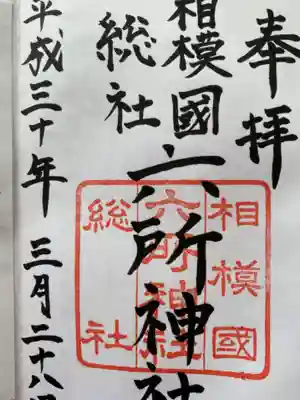 奉拝
相模國
総社
六所神社
平成三十年 三月二十八日
相模國
六所神社
総社